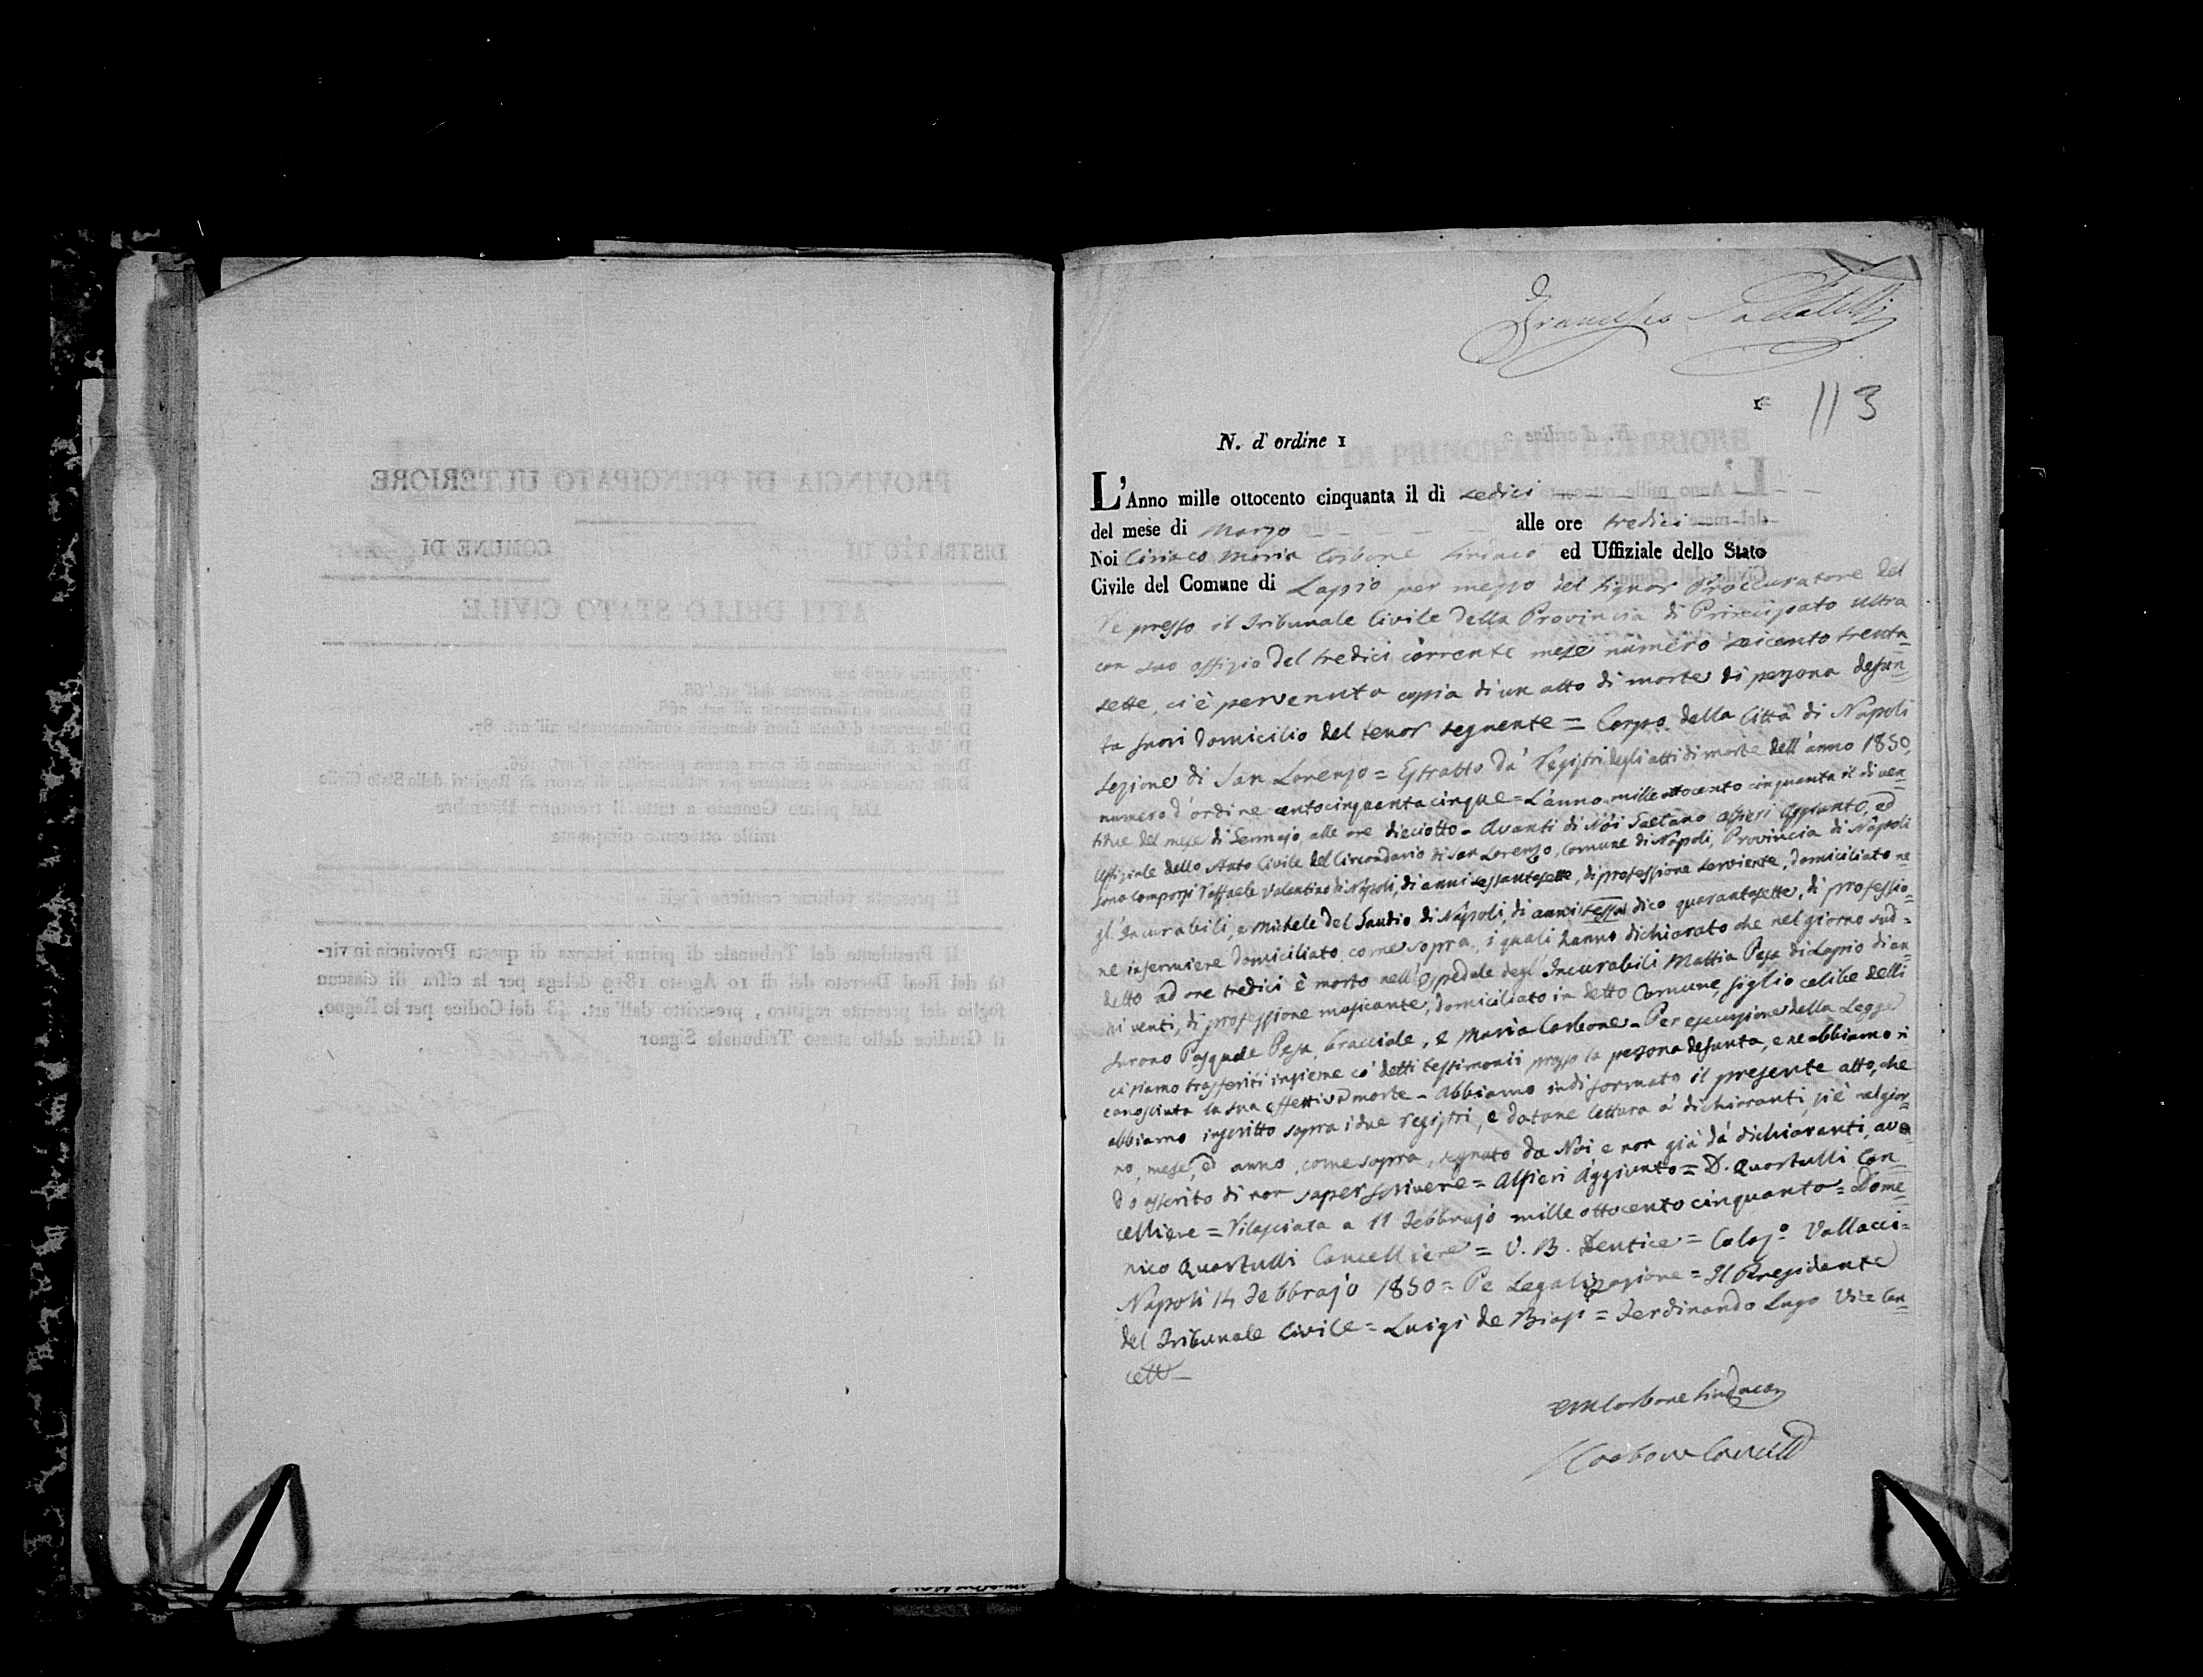 Francesco
1
113
N. d' ordine 1
L'Anno mille ottocento cinquanta il dì sedici
del mese di Marzo alle ore tredici
Noi Ciriaco Maria Carbone Sindaco ed Uffiziale dello Stato
Civile del Comune di Lapio per mezzo del Signor Proccuratore del
Re presso il Tribunale Civile della Provincia di Principato Ultra
con suo offizio del tredici corrente mese numero seicento trenta=
sette, ci è pervenuta copia di un atto di morte di persona defun=
ta fuori domicilio del tenor seguente = Corpo della Città di Napoli
Sezione di San Lorenzo = Estratto da' Registri degli atti di morte dell'anno 1850,
numero d'ordine centocinquantacinque = L'anno mille ottocento cinquanta il dì ven=
tidue del mese di Gennajo, alle ore dieciotto = Avanti di Noi Gaetano Alfieri Aggiunto, ed
Uffiziale dello Stato Civile del Circondario di San Lorenzo, Comune di Napoli, Provincia di Napoli
sono comparsi Raffaele Valentino di Napoli, di anni sessantasette, di professione serviente, domiciliato ne
gl'Incurabili, e Michele del Gaudio di Napoli, di anni sessa dico quarantasette, di professio=
ne infermiere domiciliato come sopra, i quali hanno dichiarato che nel giorno sud=
detto ad ore tredici è morto nell'Ospedale degl'Incurabili Mattia Pesa di Lapio di an=
ni venti, di professione masicante, domiciliato in detto Comune, figlio celibe delli
furono Pasquale Pesa, bracciale, e Maria Carbone = Per esecuzione della Legge
ci siamo trasferiti insieme co' detti testimonii presso la persona defunta, e ne abbiamo ri
conosciuta la sua effettiva morte = Abbiamo indi formato il presente atto, che
abbiamo inscritto sopra i due registri, e datane lettura a' dichiaranti, si è nel gior=
no, mese, ed anno, come sopra, segnato da Noi, e non già da' dichiaranti, aven
do asserito di non saper scrivere = Alfieri Aggiunto = D. Quartulli Can=
celliere = Rilasciata a 11 Febbrajo mille ottocento cinquanta = Dome=
nico Quartulli Cancelliere = V. B. Dentice = Colaz.º Vallacci=
Napoli 14 Febbrajo 1850 = Pe Legalizzazione = Il Presidente
del Tribunale Civile = Luigi de Biasi = Ferdinando Lugo Vice Can=
cell
CM Carbone Sindaco
Carbone Cancell
PROVINCIA DI PRINCIPATO ULTERIORE
DISTRETTO DI COMUNE DI
ATTI DELLO STATO CIVILE
Dal primo Gennaio a tutto il trentuno Dicembre
mille ottocento cinquanta
Il presente volume contiene fogli
Il Presidente del Tribunale di prima istanza di questa Provincia in vir-
tù del Real Decreto del dì 10 Agosto 1819 delega per la cifra di ciascun
foglio del presente registro, prescritto dall'art. 43 del Codice per lo Regno,
il Giudice dello stesso Tribunale Signor